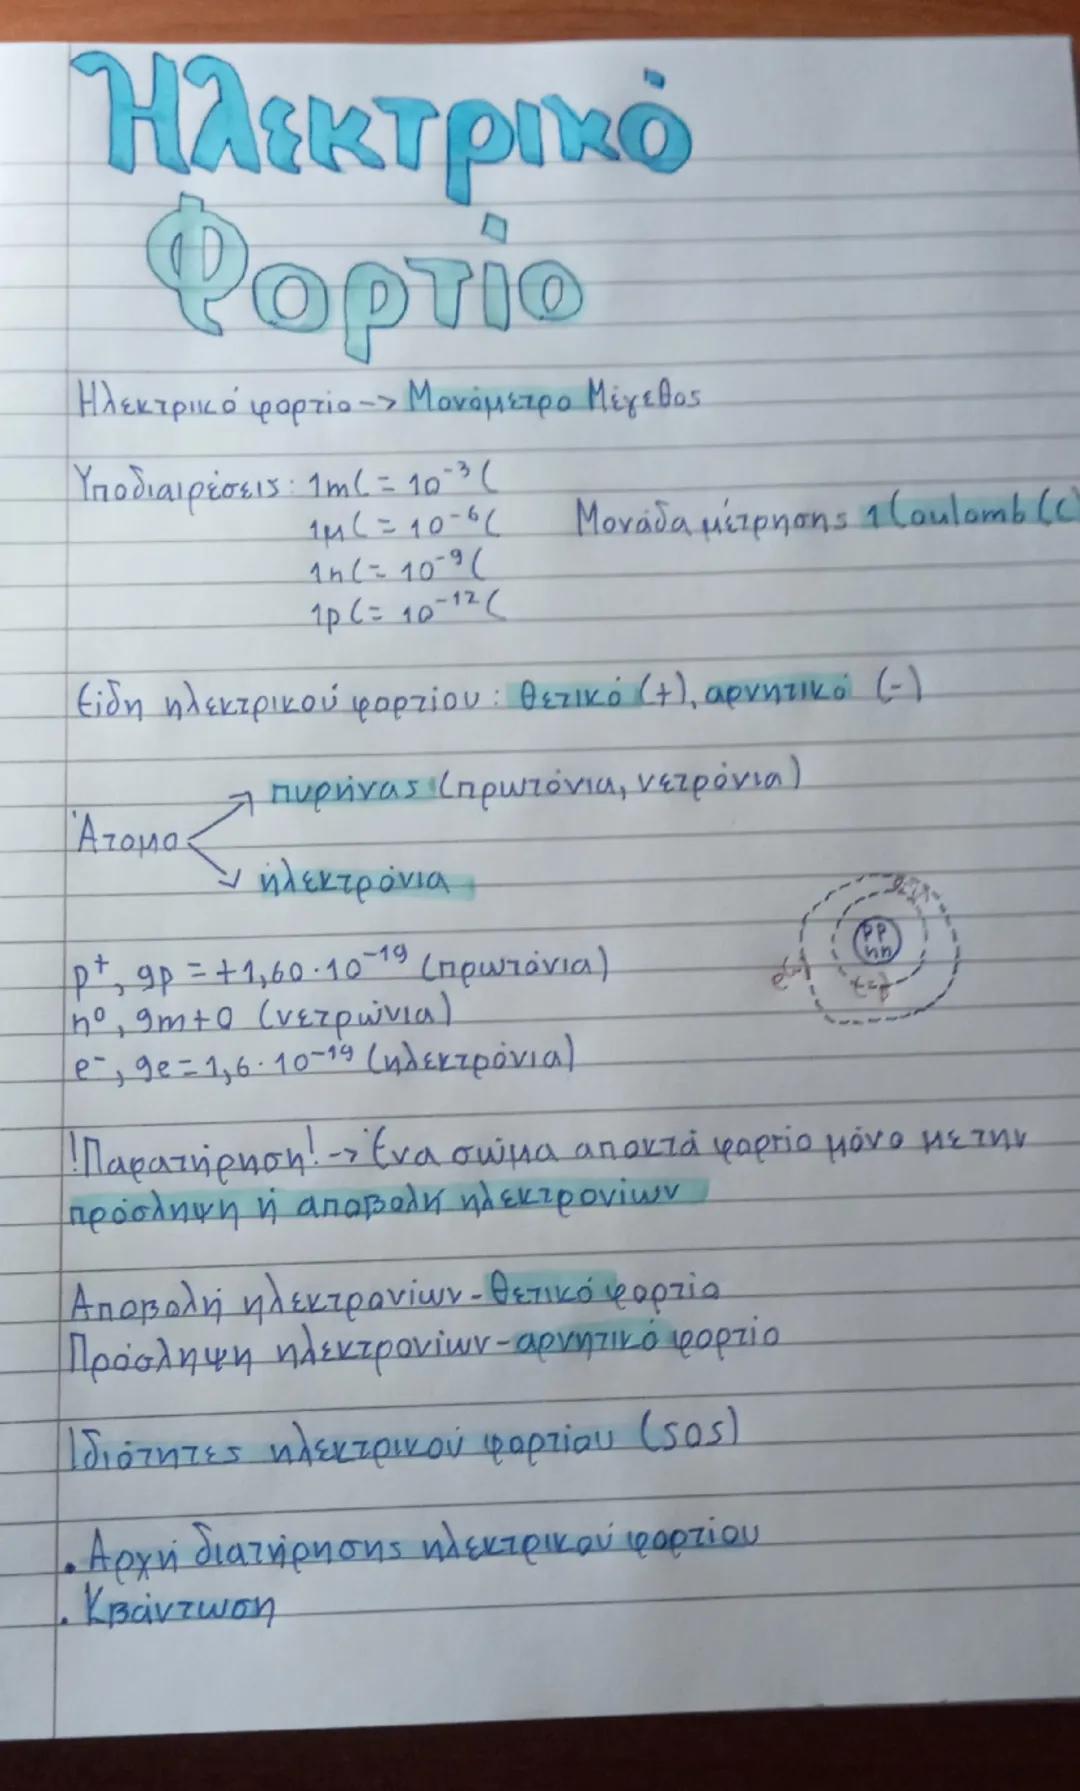 Ηλεκτρικό
Φορτίο
Ηλεκτρικό φορτίο -> Μονόμετρο Μέγεθος
Υποδιαιρέσεις: 1mC = 10⁻³C
1μC = 10⁻⁶C Μονάδα μέτρησης 1 Coulomb (C)
1nC = 10⁻⁹C
1pC = 10⁻¹²C
Είδη ηλεκτρικού φορτίου: θετικό (+), αρνητικό (-)
πυρήνας (πρωτόνια, νετρόνια)
Άτομο
ηλεκτρόνια
pp
nn
p⁺, qp = +1,60·10⁻¹⁹ (πρωτόνια)
n⁰, qm+0 (νετρώνια)
e⁻, qe = 1,6·10⁻¹⁹ (ηλεκτρόνια)
!Παρατήρηση! -> Ένα σώμα αποκτά φορτίο μόνο με την
πρόσληψη ή αποβολή ηλεκτρονίων
Αποβολή ηλεκτρονίων - θετικό φορτίο
Πρόσληψη ηλεκτρονίων - αρνητικό φορτίο
Ιδιότητες ηλεκτρικού φορτίου (sos)
. Αρχή διατήρησης ηλεκτρικού φορτίου
. Κβάντωση